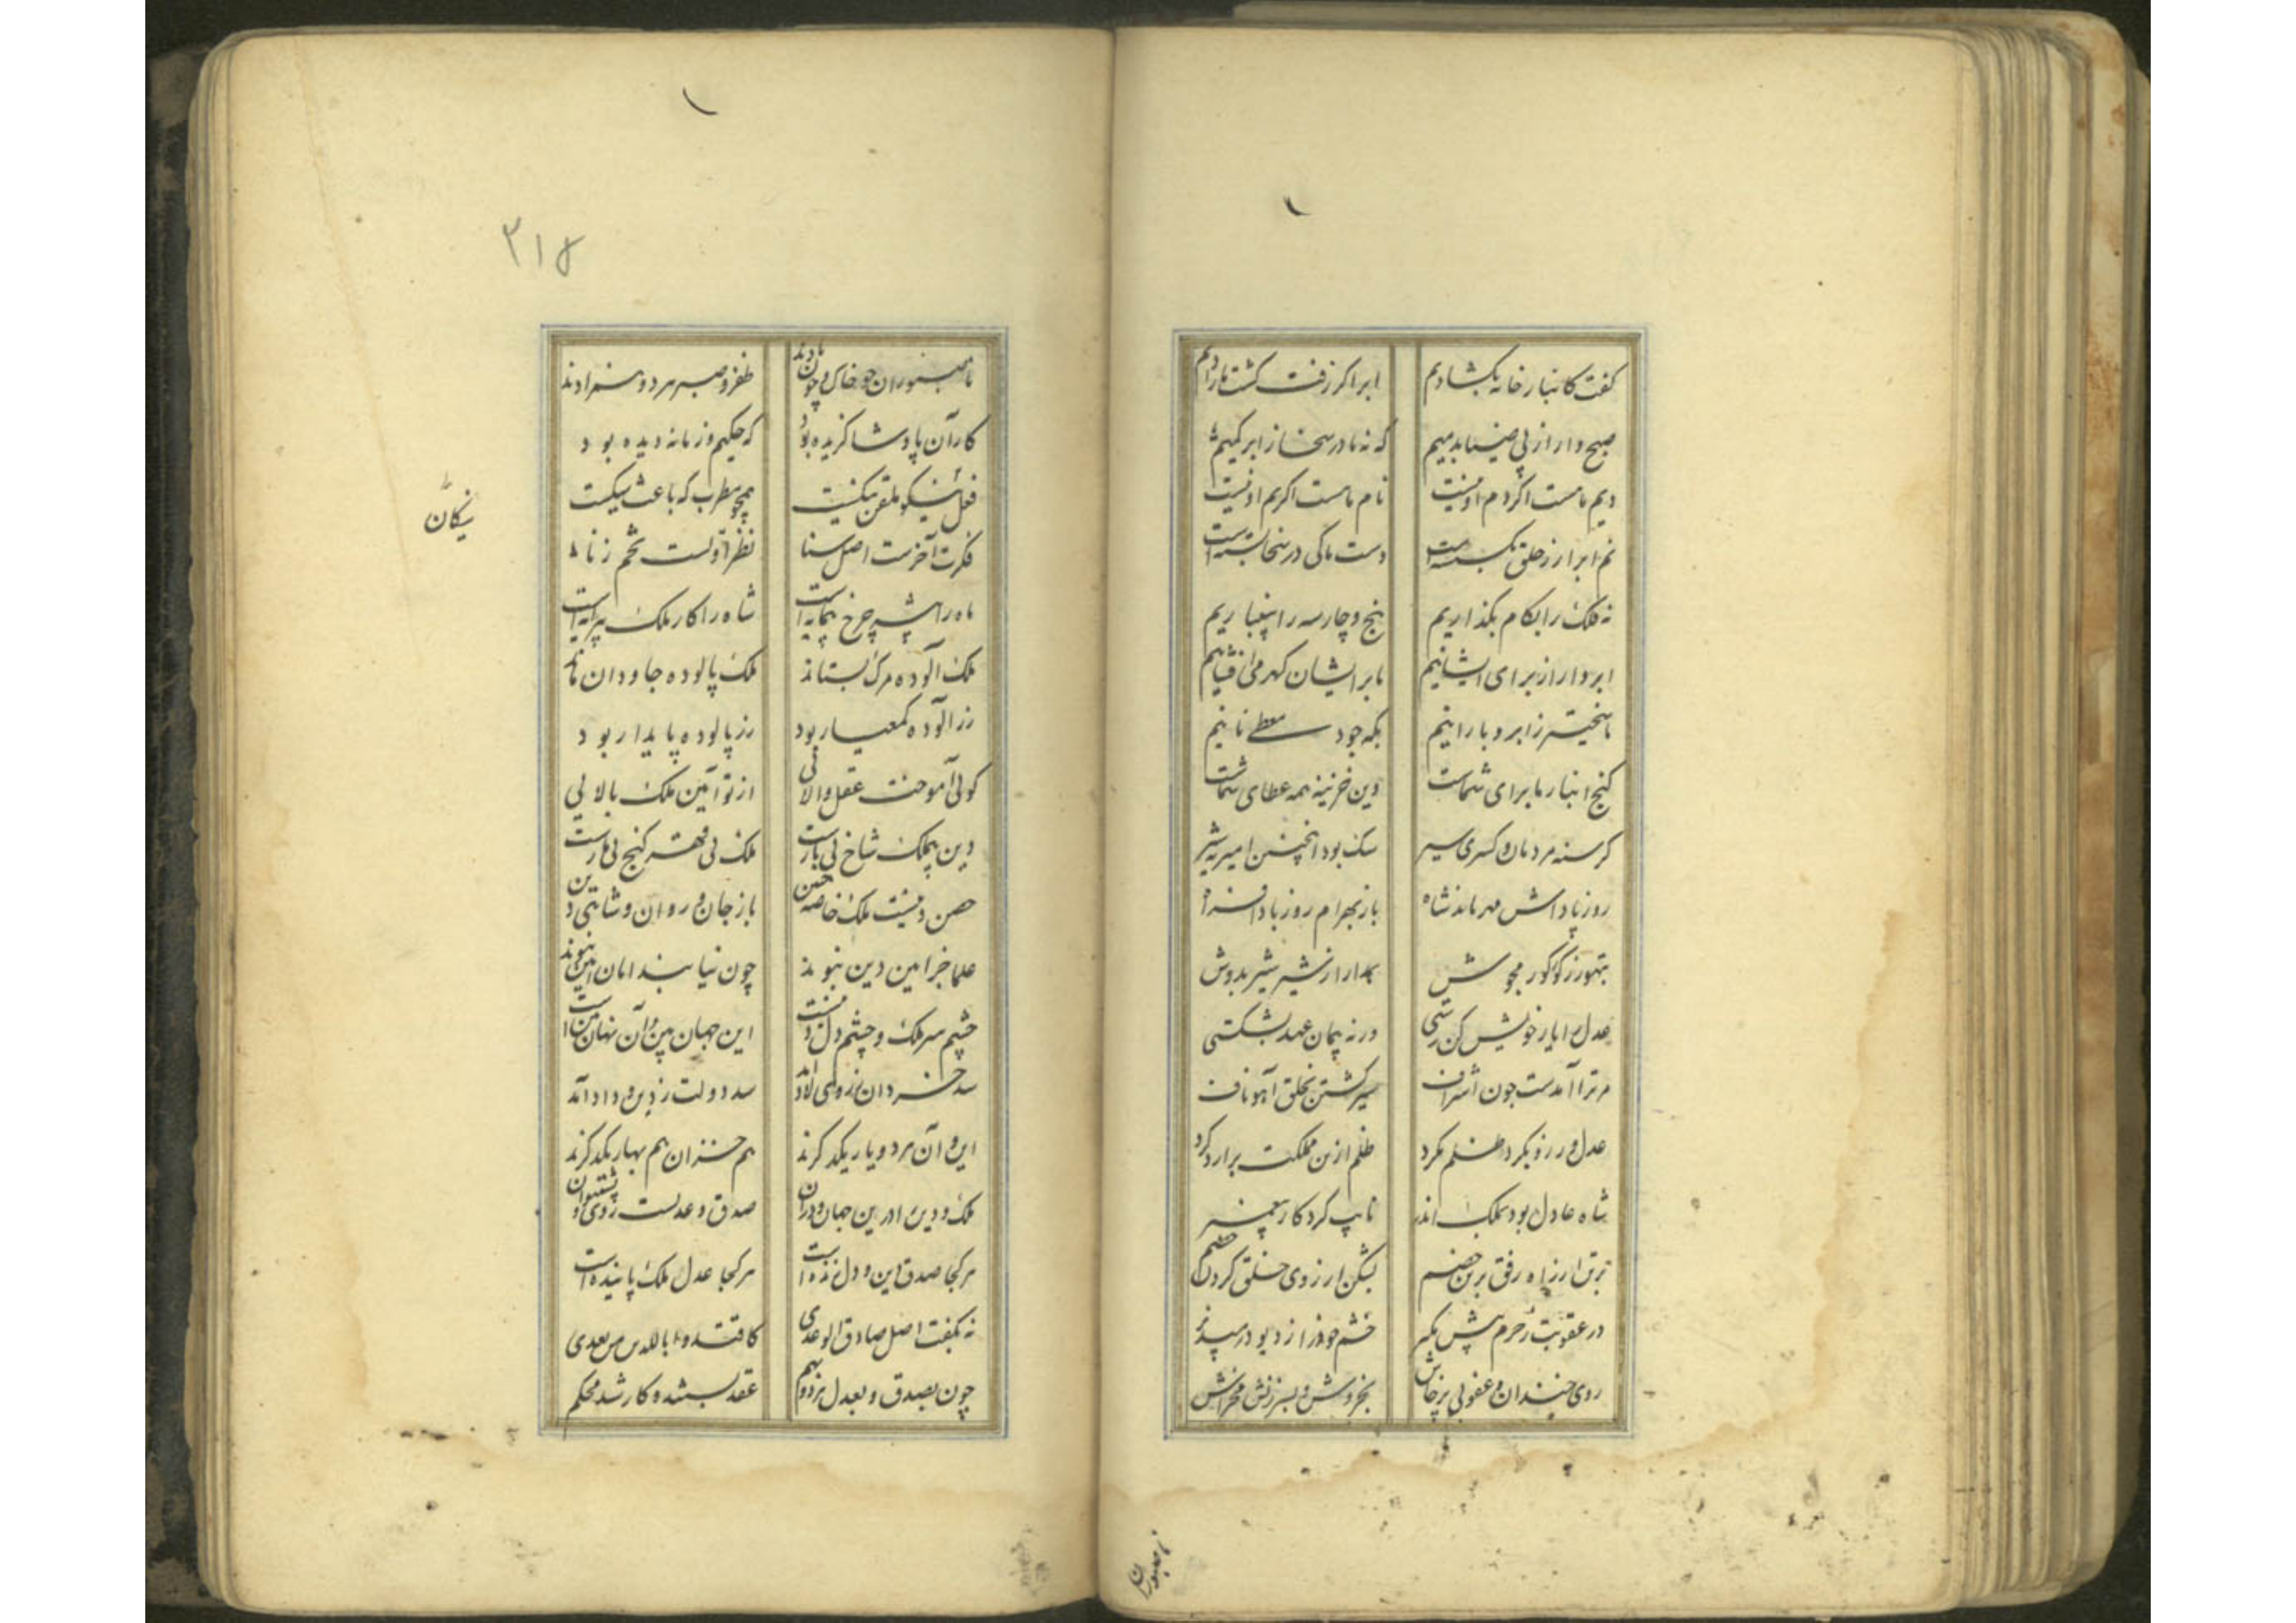 کفت کانبار خانه بکشادیم
ابر اکر زفت کشت ما رادیم
صبح وار از پی ضیا بدمیم
که نه ما در سخا ز ابر کمیم
دیم ما هست اکر دم او نیست
نام ما هست اکر نم او نیست
نم ابر ار ز خلق بکسسته است
دست ما کی در سخا بسته است
نه فلک را بکام بکذاریم
پنج و چار سه را بینباریم
ابر وار از برای ایشانیم
ما بر ایشان کهر می افشانیم
ما سخی‌تر ز ابر و بارانیم
بکه جود معطی نانیم
کنج انبار ما برای شماست
وین خزینه همه عطای شماست
کرسنه مردمان و کسری سیر
سک بود اینچنین امیر نه شیر
روز پاداش مهر ماند شاه
باز بهرام روز بادافراه
بتهور ز کور کور مجوش
بمدارا ز شیر شیر بدوش
عدل را یار خویش کن رستی
ورنه پیمان عهد بشکستی
مر ترا آمدست چون اشراف
سیر کشتن بخلق آهو ناف
عدل ورز و بکرد ظلم مکرد
ظلم ازین مملکت برارد کرد
شاه عادل بود بملک اندر
نایب کردکار پیغمبر
برق ار زاه رفق برین خصم
بشکن ارزوی خلق کردن خصم
در عقوبت ز جرم پیش مکیر
خشم خود را ز دیو در مپذیر
روی خندان و عفو بی پرخاش
بخروش و بسرزنش مخراش
ناصبوران
۳۱۸
ناصبوران چو خاک و چون بادند
ظفر و صبر هر دو همزادند
کار آن پادشا کزیده بود
که حکیم و زمانه دیده بود
فعل نیکو ملقن نیکیست
همچو مطرب که باعث سیکیست
نیکان
فکرت آخرست اصل سنا
نظر اولست تخم زنا
ماه را شیر چرخ پیمایه است
شاه را کار ملک پیرایه است
ملک آلوده مرک بستاند
ملک پالوده جاودان ماند
زر آلوده کمعیار بود
زر پالوده پایدار بود
کوئی آموخت عقل والائی
از تو آیین ملک بالایی
دین بیملک شاخ بی بارست
ملک بی قهر کنج بی مارست
حصن دنیست ملک خاصه حصین
باز جان و روان و شاهی دین
علما جز امین دین نبوند
چون نیابند امان امین نبوند
چشم سر ملک و چشم دل دینست
این جهان بین و آن نهان بین است
سد خسروان ز روی لاد
سد دولت ز دین و داد آمد
این و آن هر دو یار یکدکرند
هم خزان هم بهار یکدکرند
ملک و دین را درین جهان و در آن
صدق و عدلست ز روی او پشتیوان
هر کجا صدق دین و دل زنده است
هر کجا عدل ملک پاینده است
نه بکفت اصل صادق الوعدی
کاقتدوا باللذین من بعدی
چون بصدق و بعدل هر دو بهم
عقد بستند و کار شد محکم